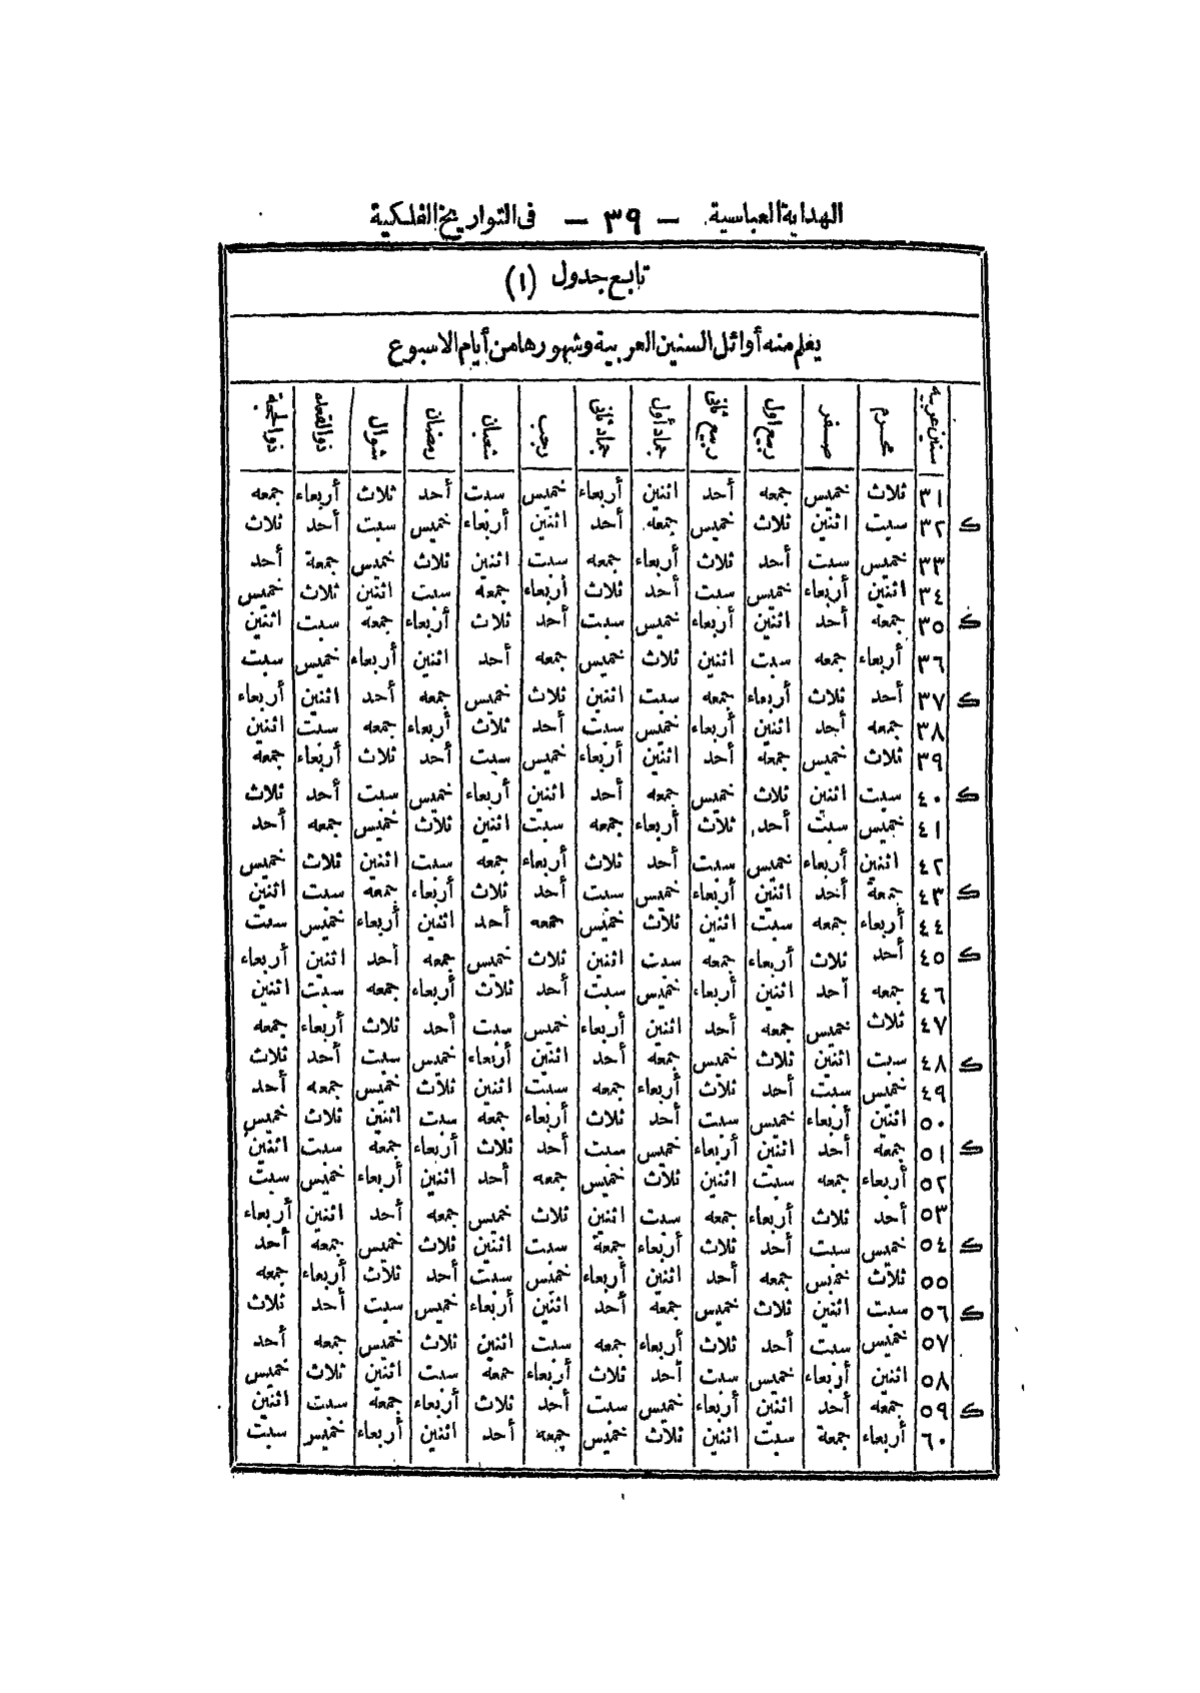 الهداية العباسية - ٣٩ - فى التواريخ الفلكية
تابع جدول (١)
يعلم منه أوائل السنين العربية وشهورها من أيام الاسبوع
سنين عربيه محرم صفر ربيع اول ربيع ثانى جماد أول جماد ثانى رجب شعبان رمضان شوال ذوالقعده ذوالحجة
٣١ ثلاث خميس جمعه أحد اثنين أربعاء خميس سبت أحد ثلاث أربعاء جمعه
ك ٣٢ سبت اثنين ثلاث خميس جمعه أحد اثنين أربعاء خميس سبت أحد ثلاث
٣٣ خميس سبت أحد ثلاث أربعاء جمعه سبت اثنين ثلاث خميس جمعة أحد
٣٤ اثنين أربعاء خميس سبت أحد ثلاث أربعاء جمعه سبت اثنين ثلاث خميس
ك ٣٥ جمعه أحد اثنين أربعاء خميس سبت أحد ثلاث أربعاء جمعه سبت اثنين
٣٦ أربعاء جمعه سبت اثنين ثلاث خميس جمعه أحد اثنين أربعاء خميس سبت
ك ٣٧ أحد ثلاث أربعاء جمعه سبت اثنين ثلاث خميس جمعه أحد اثنين أربعاء
٣٨ جمعه أحد اثنين أربعاء خميس سبت أحد ثلاث أربعاء جمعه سبت اثنين
٣٩ ثلاث خميس جمعه أحد اثنين أربعاء خميس سبت أحد ثلاث أربعاء جمعه
ك ٤٠ سبت اثنين ثلاث خميس جمعه أحد اثنين أربعاء خميس سبت أحد ثلاث
٤١ خميس سبت أحد ثلاث أربعاء جمعه سبت اثنين ثلاث خميس جمعه أحد
٤٢ اثنين أربعاء خميس سبت أحد ثلاث أربعاء جمعه سبت اثنين ثلاث خميس
ك ٤٣ جمعة أحد اثنين أربعاء خميس سبت أحد ثلاث أربعاء جمعه سبت اثنين
٤٤ أربعاء جمعه سبت اثنين ثلاث خميس جمعه أحد اثنين أربعاء خميس سبت
ك ٤٥ أحد ثلاث أربعاء جمعه سبت اثنين ثلاث خميس جمعه أحد اثنين أربعاء
٤٦ جمعه أحد اثنين أربعاء خميس سبت أحد ثلاث أربعاء جمعه سبت اثنين
٤٧ ثلاث خميس جمعه أحد اثنين أربعاء خميس سبت أحد ثلاث أربعاء جمعه
ك ٤٨ سبت اثنين ثلاث خميس جمعه أحد اثنين أربعاء خميس سبت أحد ثلاث
٤٩ خميس سبت أحد ثلاث أربعاء جمعه سبت اثنين ثلاث خميس جمعه أحد
٥٠ اثنين أربعاء خميس سبت أحد ثلاث أربعاء جمعه سبت اثنين ثلاث خميس
ك ٥١ جمعه أحد اثنين أربعاء خميس سبت أحد ثلاث أربعاء جمعه سبت اثنين
٥٢ أربعاء جمعه سبت اثنين ثلاث خميس جمعه أحد اثنين أربعاء خميس سبت
٥٣ أحد ثلاث أربعاء جمعه سبت اثنين ثلاث خميس جمعه أحد اثنين أربعاء
ك ٥٤ خميس سبت أحد ثلاث أربعاء جمعة سبت اثنين ثلاث خميس جمعه أحد
٥٥ ثلاث خميس جمعه أحد اثنين أربعاء خميس سبت أحد ثلاث أربعاء جمعه
ك ٥٦ سبت اثنين ثلاث خميس جمعه أحد اثنين أربعاء خميس سبت أحد ثلاث
٥٧ خميس سبت أحد ثلاث أربعاء جمعه سبت اثنين ثلاث خميس جمعه أحد
٥٨ اثنين أربعاء خميس سبت أحد ثلاث أربعاء جمعه سبت اثنين ثلاث خميس
ك ٥٩ جمعه أحد اثنين أربعاء خميس سبت أحد ثلاث أربعاء جمعه سبت اثنين
٦٠ أربعاء جمعة سبت اثنين ثلاث خميس جمعه أحد اثنين أربعاء خميس سبت